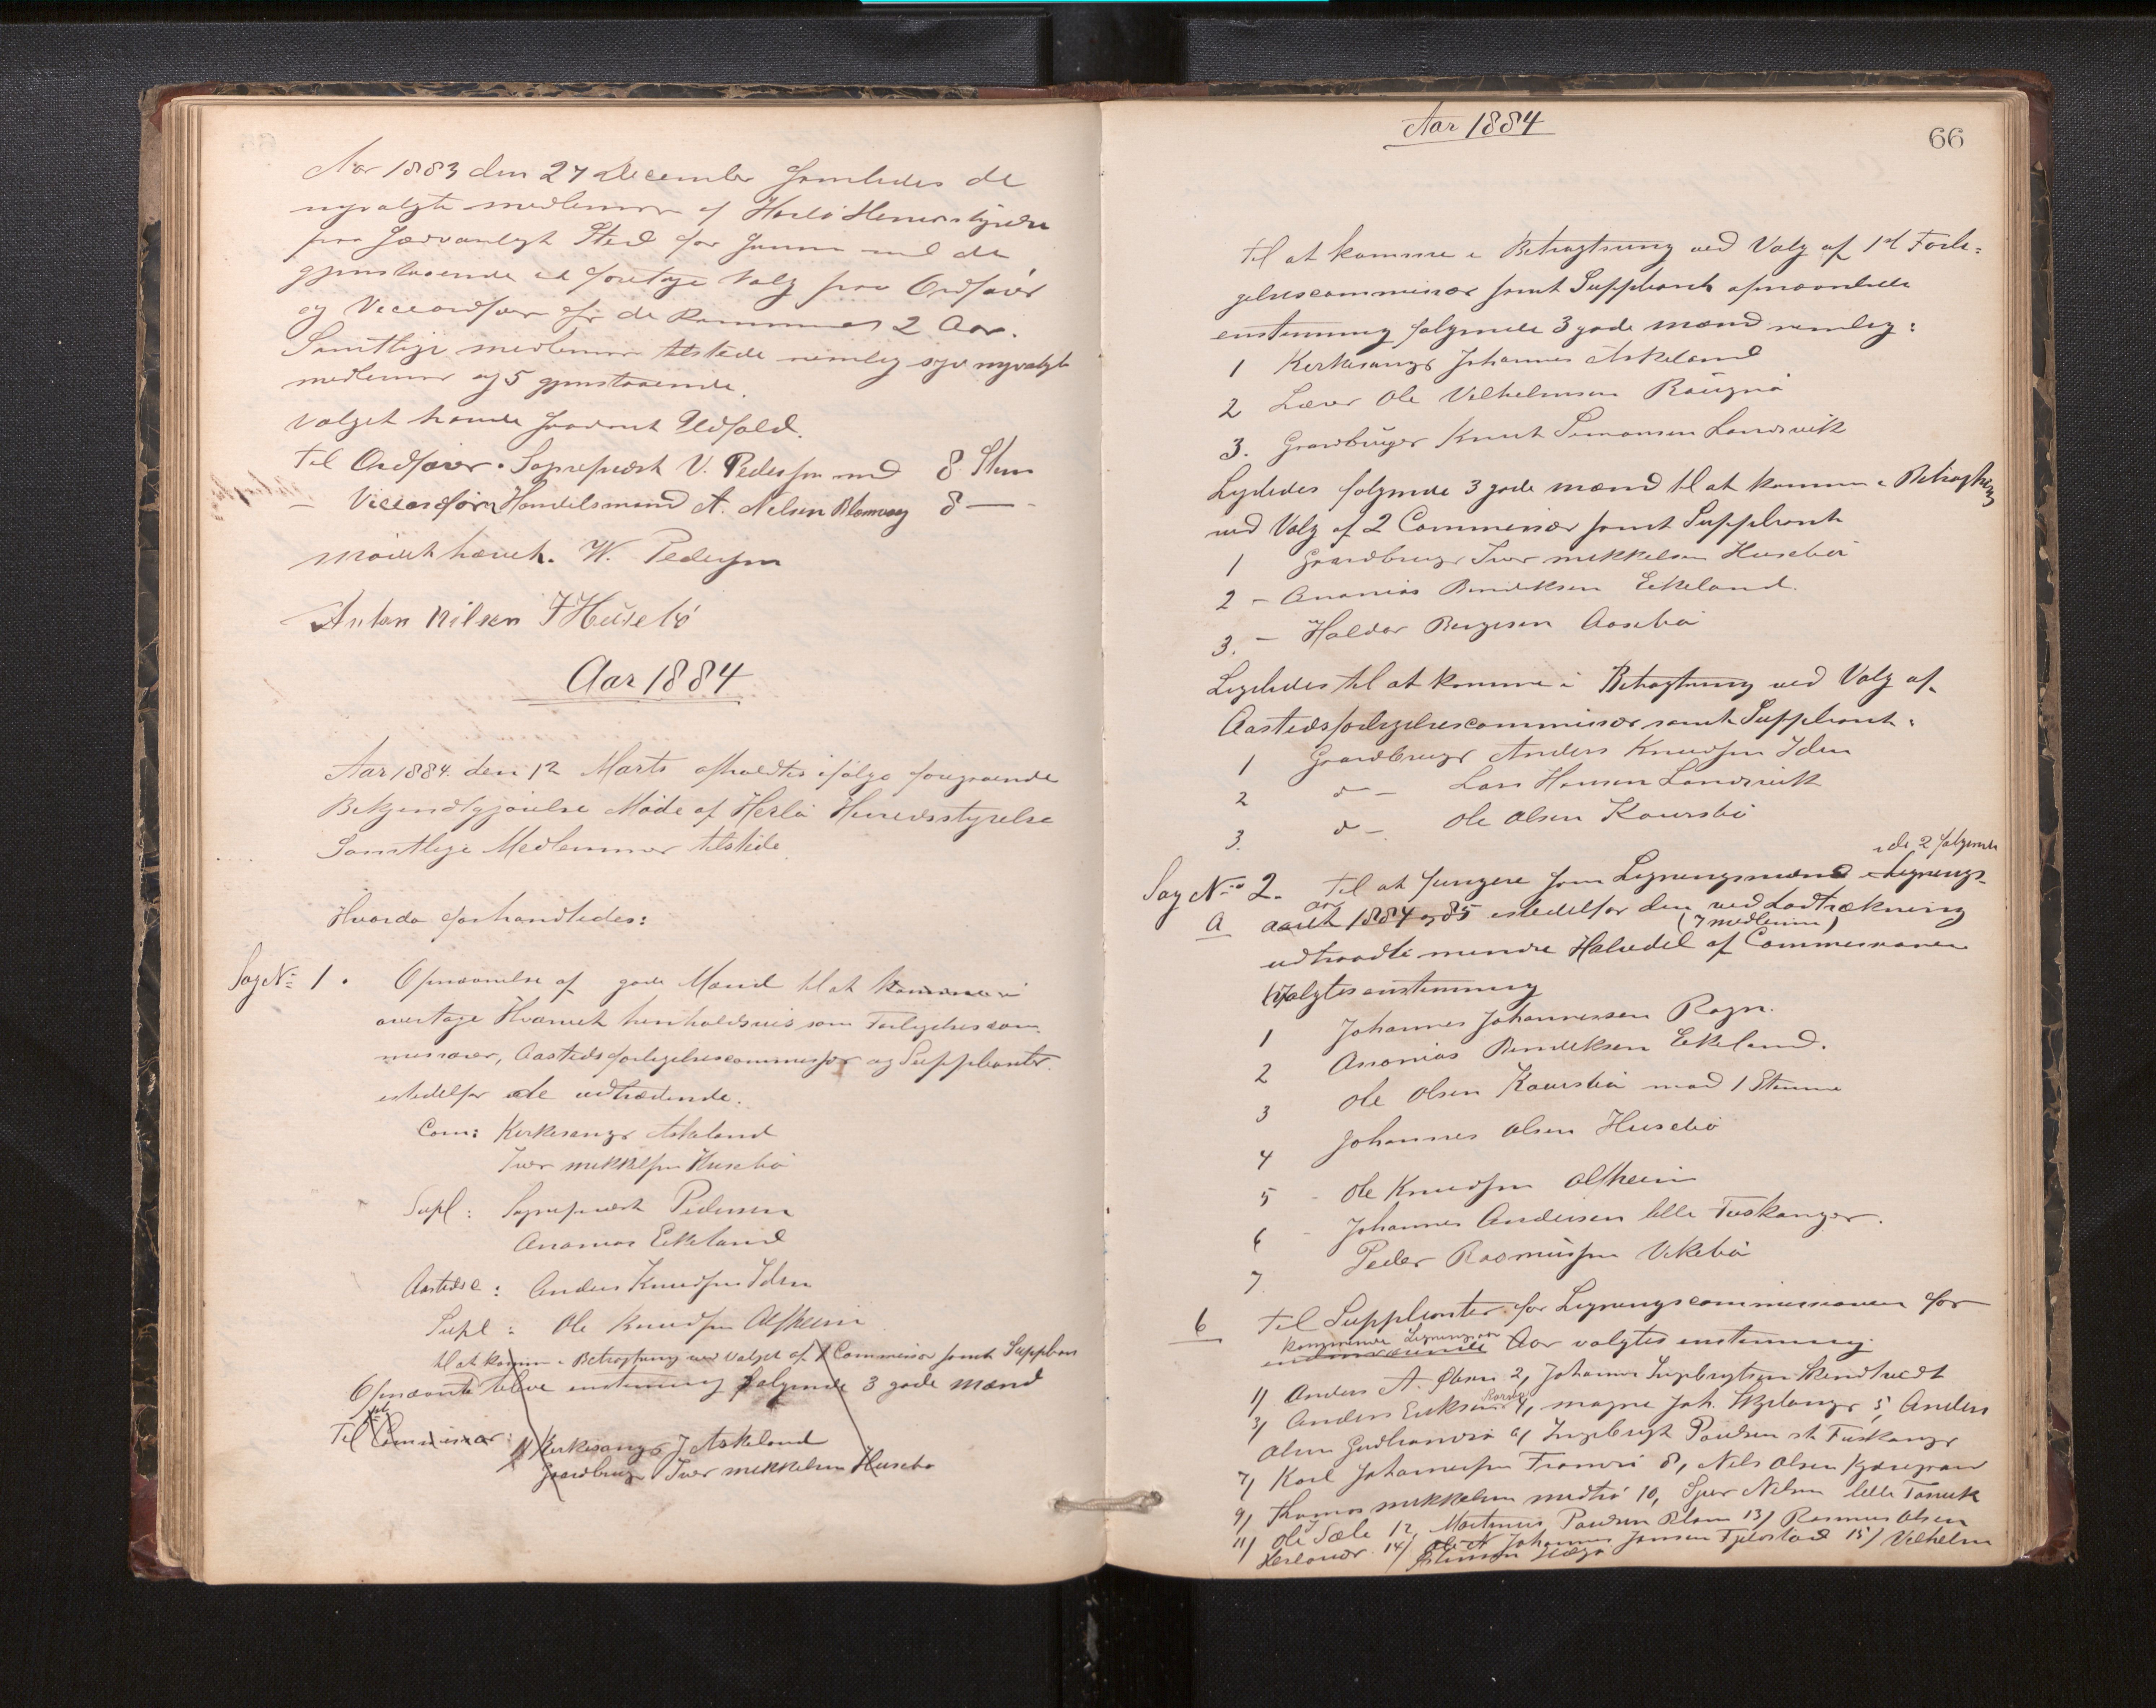 Aar 1883 den 27 December samledes de
nyvalgte medlemer af Herlø Herredsstyrelse
paa sædvanligt Sted for samme med de
gjenstaaende at foretage Valg paa Ordfører
og Viceordfører for de kommende 2 Aar.
Samtlige medlemmer tilstede nemlig syv nyvalgte
medlemmer og 5 gjenstaaende.
Valget havde saadant Udfald.
Til Ordfører. Sogneprest V. Pedersen med 8 Stem
— Viceordfører Handelsmand A. Nilsen Blomvaag 8 —
Mødet hævet. W. Pedersen
Anton Nilsen I Husebø
Aar 1884
Aar 1884 den 12 Marts afholdtes ifølge foregaaende
Bekjendtgjørelse Møde af Herlø Herredsstyrelse
Samtlige Medlemmer tilstede.
Hvorda forhandledes:
Sag No 1. Opnævnelse af gode Mænd til at komme i
overtage Hvervet henholdsvis som Forligelsescom-
missærer, Aastedsforligelsescommissær og Suppleanter
istedetfor de udtrædende.
Com: Kirkesanger Askeland
Iver Mikkelsen Husebø
Supl: Sogneprest Pedersen
Ananias Eikeland
Aastedsc: Anders Knudsen Iden
Supl: Ole Knudsen Alfheim
til at komme i Betragtning ved Valget af 1 Commissær samt Supplean
Opnævnte bleve enstemmig følgende 3 gode Mænd
Til Commissær: 1) Kirkesanger J Askeland
Gaardbruger Iver Mikkelsen Husebø
Aar 1884
66
Til at komme i Betragtning ved Valg af 1st Forli-
gelsescommissær samt Suppleant opnævntes
enstemmig følgende 3 gode Mænd nemlig:
1 Kirkesanger Johannes Askeland
2 Lærer Ole Vilhelmsen Rougnø
3. Gaardbruger Knut Simonsen Landsvik
Ligeledes følgende 3 gode mænd til at komme i Betragtning
ved Valg af 2 Commissær samt Suppleant
1 Gaardbruger Iver Mikkelsen Husebø
2 — Ananias Bendiksen Eikeland.
3. — Haldor Børgesen Aasebø
Ligeledes til at komme i Betragtning ved Valg af
Aastedsforligelsescommissær samt Suppleant.
1 Gaardbruger Anders Knudsen Iden
2 d — Lars Hansen Landsvik
3. d — Ole Olsen Kaursbø
i de 2 følgende
Sag No 2. Til at fungere som Ligningsmænd i Lignings-
A aaret 1884 og 85 istedetfor den ved Lodtrækning
(7 medlemmer)
udtraadte mindre Halvdel af Commissionen
Valgtes enstemmig
1 Johannes Johannessen Rogn.
2 Ananias Bendiksen Eikeland.
3 Ole Olsen Kaursbø mod 1 Stemme
4 Johannes Olsen Husebø
5 - Ole Knudsen Alfheim
6 - Johannes Andersen lille Fuskanger.
7 Peder Rasmussen Vikebø
6 Til Suppleanter for Ligningscommissionen for
kommende Ligningsaar
indeværende Aar valgtes enstemmig.
1) Anders A. Olsen 2, Johannes Ingebrigtsen Skindtvedt
3) Anders Eriksen 4, Magne Joh. Skjelanger 5, Anders
Olsen Gudbrandsø 6, Ingebrigt Poulsen st Fuskanger
7) Karl Johannessen Fromrø 8, Nils Olsen
9) Thomas Mikkelsen Midtø 10, Sjur Nilsen lille
11) Ole Sæle 12, Martinus Poulsen Blom 13) Rasmus Olsen
Herlevær 14) Johannes Jansen Fjeldstad 15) Vilhelm